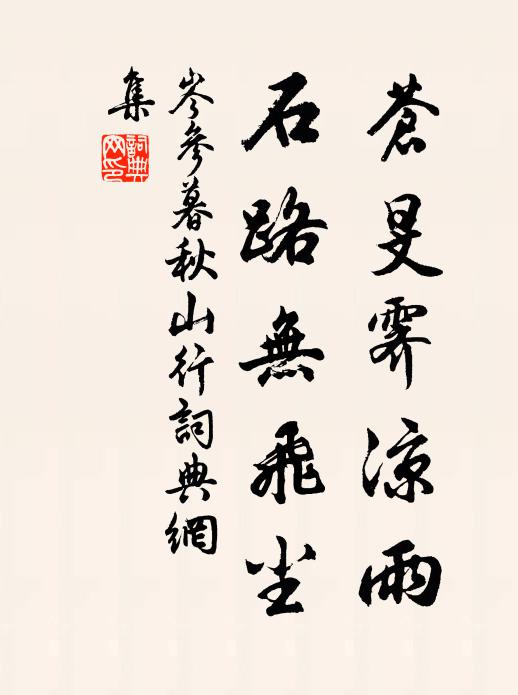 蒼旻霽涼雨
石路無飛尘
岑參暮秋山行詞典網
集
詞典网印